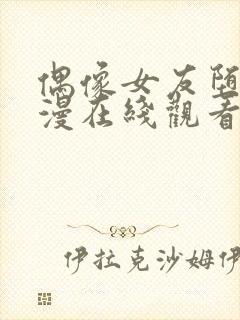 偶像女友堕
漫在线觀看
伊拉克沙姆伊